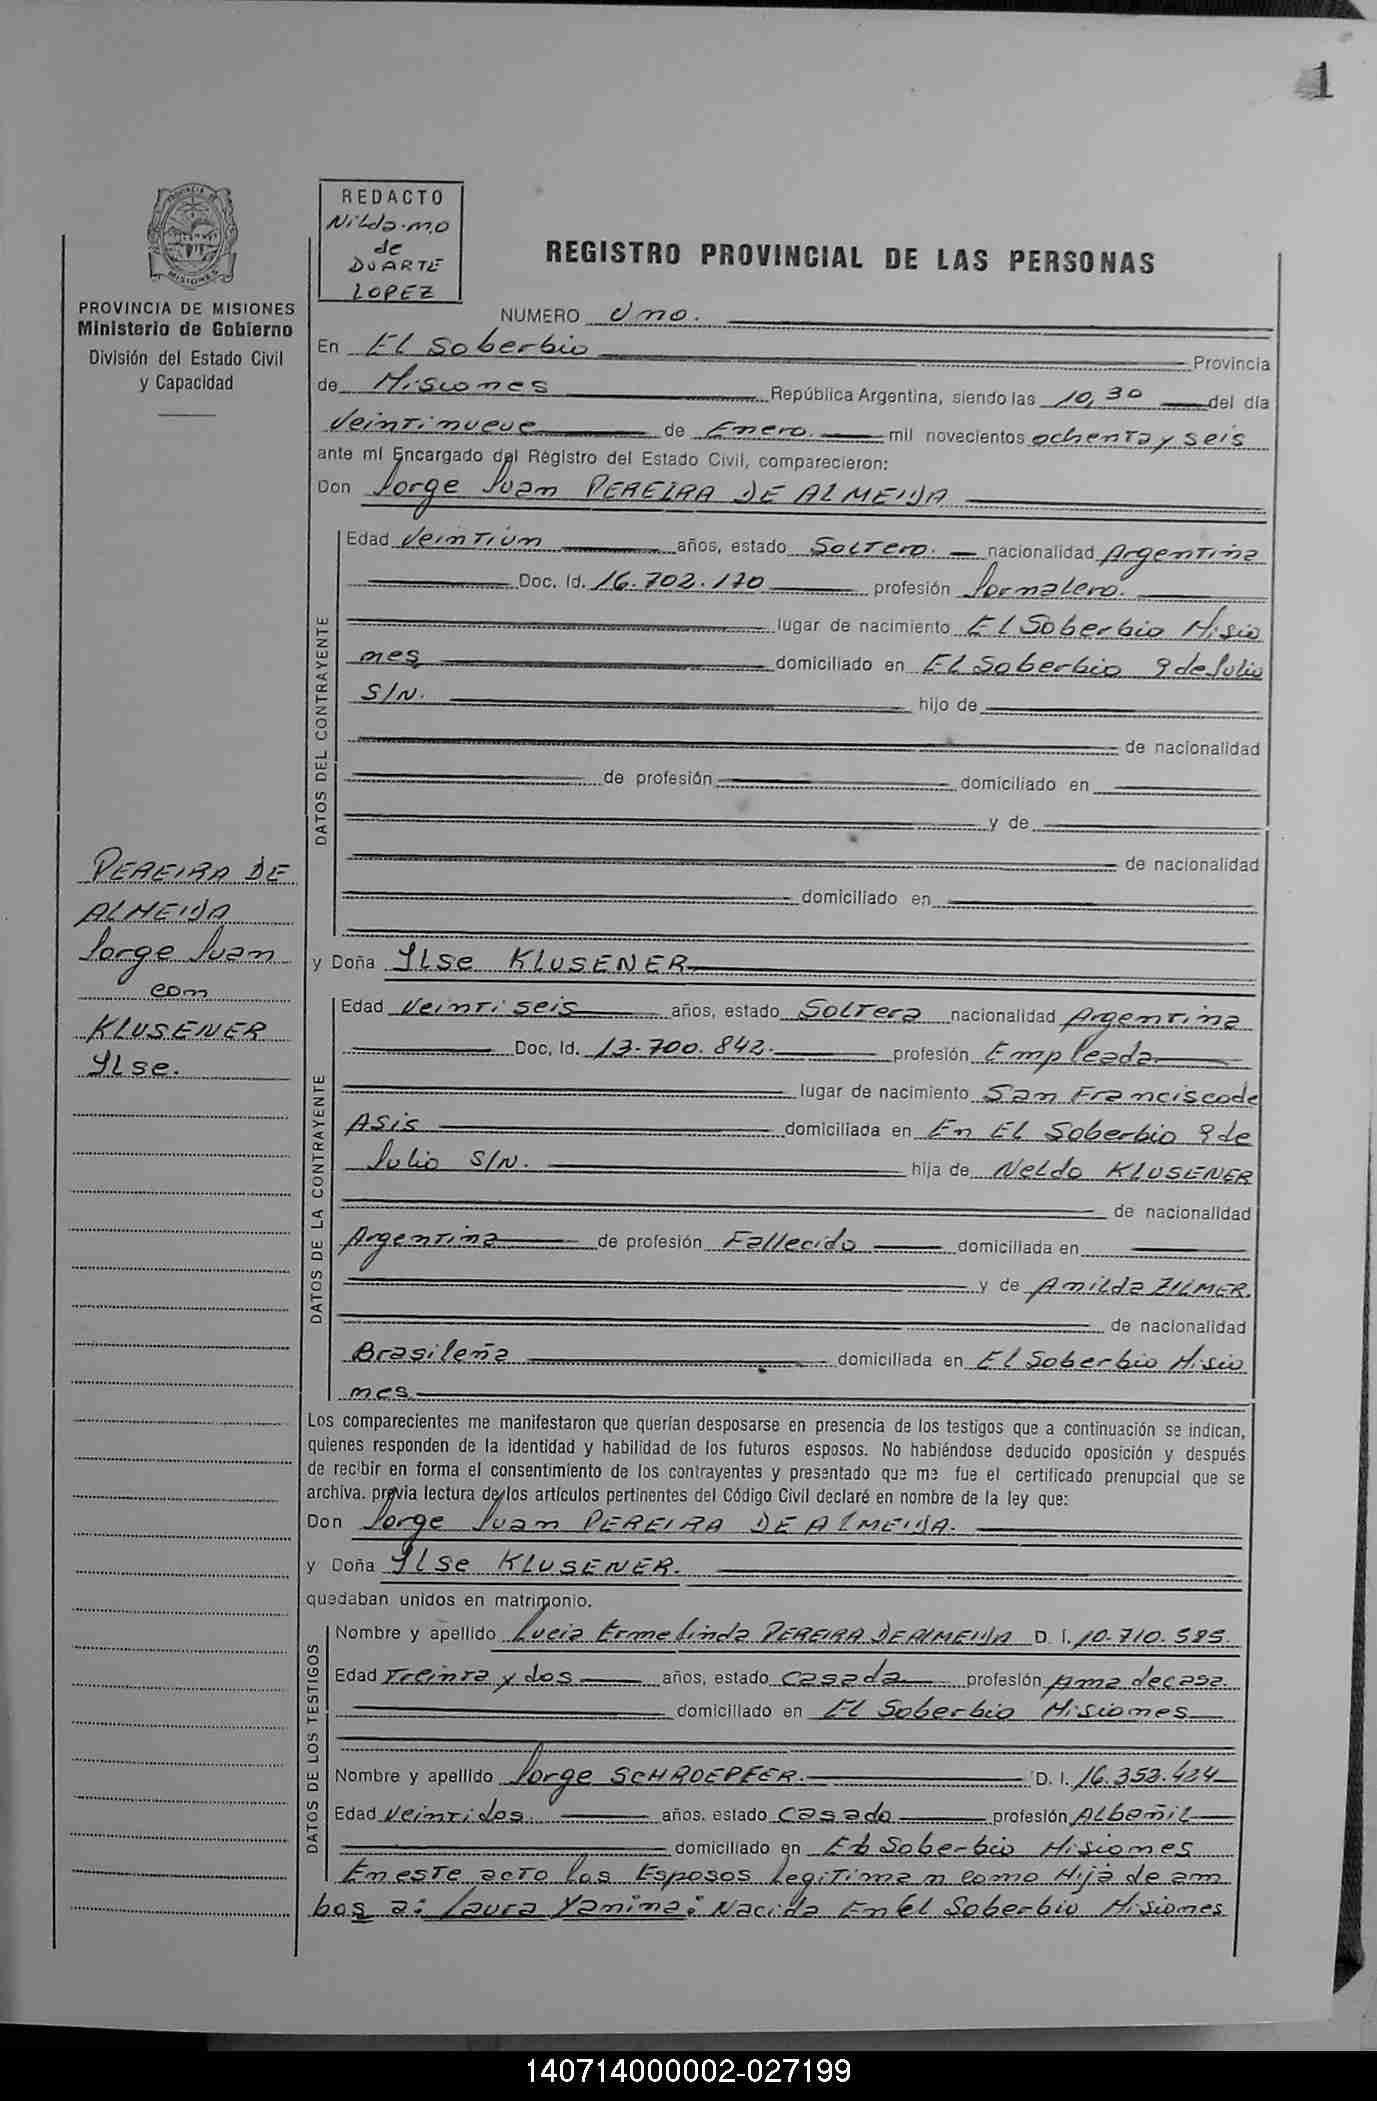 1
REDACTO
Nilda. M.O
de
DUARTE
LOPEZ
PROVINCIA DE MISIONES
Ministerio de Gobierno
División del Estado Civil
y Capacidad
REGISTRO PROVINCIAL DE LAS PERSONAS
NUMERO Uno.
En El Soberbio Provincia
de Misiones República Argentina, siendo las 10,30 del día
Veintinueve de Enero. mil novecientos ochenta y seis
ante mí Encargado del Registro del Estado Civil, comparecieron:
Don Jorge Juan PEREIRA DE ALMEIDA
DATOS DEL CONTRAYENTE
Edad Veintiún años, estado Soltero. nacionalidad Argentina
Doc. Id. 16.702.170 profesión Jornalero.
lugar de nacimiento El Soberbio Misio
nes domiciliado en El Soberbio 9 de Julio
S/N. hijo de
de nacionalidad
de profesión domiciliado en
y de
de nacionalidad
domiciliado en
PEREIRA DE
ALMEIDA
Jorge Juan
con
KLUSENER
Ylse.
y Doña Ylse KLUSENER
DATOS DE LA CONTRAYENTE
Edad Veintiseis años, estado Soltera nacionalidad Argentina
Doc. Id. 13.700.842. profesión Empleada
lugar de nacimiento San Francisco de
Asis domiciliada en En El Soberbio 9 de
Julio S/N. hija de Neldo KLUSENER
de nacionalidad
Argentina de profesión Fallecido domiciliada en
y de Anilda ZILMER.
de nacionalidad
Brasileña domiciliada en El Soberbio Misio
nes
Los comparecientes me manifestaron que querían desposarse en presencia de los testigos que a continuación se indican,
quienes responden de la identidad y habilidad de los futuros esposos. No habiéndose deducido oposición y después
de recibir en forma el consentimiento de los contrayentes y presentado que me fue el certificado prenupcial que se
archiva. previa lectura de los artículos pertinentes del Código Civil declaré en nombre de la ley que:
Don Jorge Juan PEREIRA DE ALMEIDA.
y Doña Ylse KLUSENER.
quedaban unidos en matrimonio.
DATOS DE LOS TESTIGOS
Nombre y apellido Lucia Ermelinda PEREIRA DE ALMEIDA D. I. 10.710.585.
Edad Treinta y dos años, estado Casada profesión Ama de casa.
domiciliado en El Soberbio Misiones
Nombre y apellido Jorge SCHROEPFER. D. I. 16.353.424
Edad Veintidos. años. estado Casado profesión Albañil
domiciliado en El Soberbio Misiones
En este acto los Esposos legitiman como Hija de am
bos a: Laura Yanina: Nacida En El Soberbio Misiones
140714000002-027199